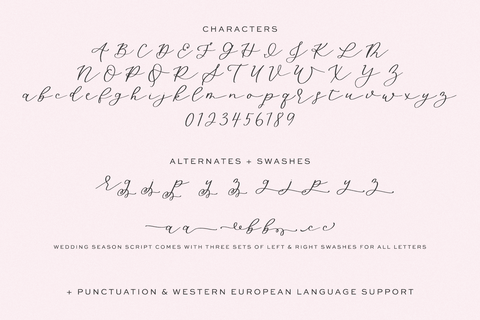 CHARACTERS
A B C D E F G H I J K L M
N O P Q R S T U V W X Y Z
a b c d e f g h i j k l m n o p q r s t u v w x y z
0123456789
ALTERNATES + SWASHES
r g g j p y z g j p y z
a a b b c c
WEDDING SEASON SCRIPT COMES WITH THREE SETS OF LEFT & RIGHT SWASHES FOR ALL LETTERS
+ PUNCTUATION & WESTERN EUROPEAN LANGUAGE SUPPORT